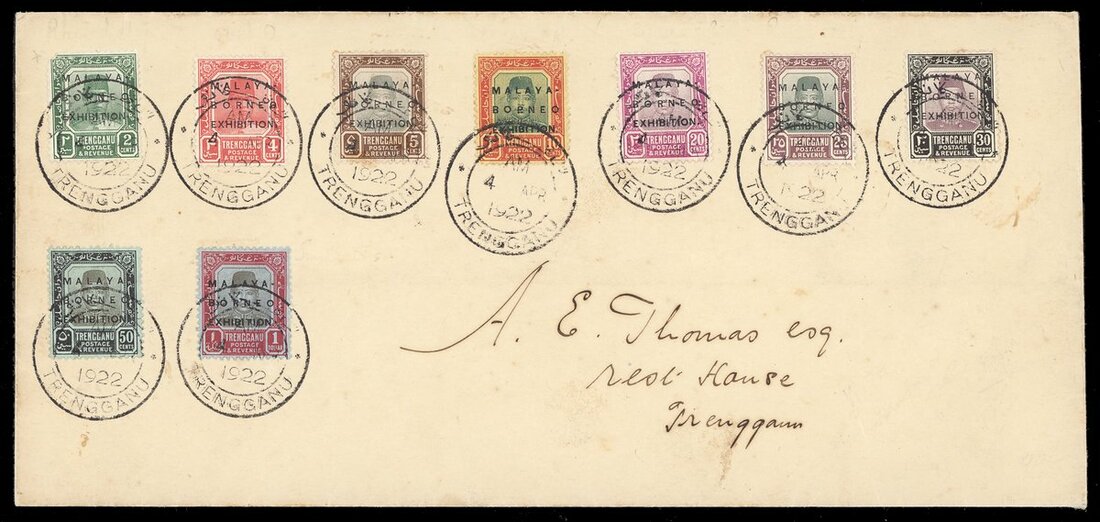 MALAYA-
BORNEO
EXHIBITION.
TRENGGANU
POSTAGE
& REVENUE
٢
2
CENTS
1922
TRENGGANU
MALAYA-
BORNEO
EXHIBITION.
TRENGGANU
POSTAGE
& REVENUE
4
CENTS
AM
4
1922
TRENGGANU
MALAYA-
BORNEO
EXHIBITION.
TRENGGANU
POSTAGE
& REVENUE
5
CENTS
1922
TRENGGANU
MALAYA-
BORNEO
EXHIBITION.
10
AM
4 APR
1922
TRENGGANU
MALAYA-
BORNEO
EXHIBITION.
TRENGGANU
POSTAGE
& REVENUE
20
CENTS
4
1922
TRENGGANU
MALAYA-
BORNEO
EXHIBITION.
TRENGGANU
POSTAGE
& REVENUE
٢٥
25
CENTS
4 APR
1922
TRENGGANU
MALAYA-
BORNEO
EXHIBITION.
TRENGGANU
POSTAGE
& REVENUE
30
CENTS
22
TRENGGANU
MALAYA-
BORNEO
EXHIBITION.
TRENGGANU
POSTAGE
& REVENUE
50
CENTS
1922
TRENGGANU
MALAYA-
BORNEO
EXHIBITION.
TRENGGANU
POSTAGE
& REVENUE
١
1
DOLLAR
1922
TRENGGANU
A. E. Thomas esq.
Rest House
Trengganu